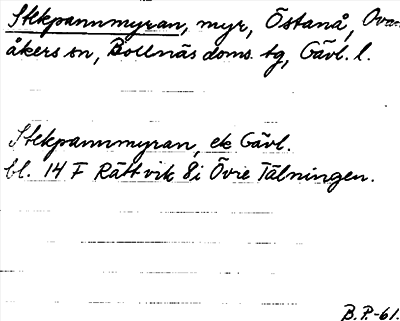 Stekpannmyran, myr, Östanå, Ovan-
åkers sn, Bollnäs doms. tg, Gävl. l.
Stekpannmyran, ek Gävl.
bl. 14 F Rättvik 8i Övre Tälningen.
B.P.-61.